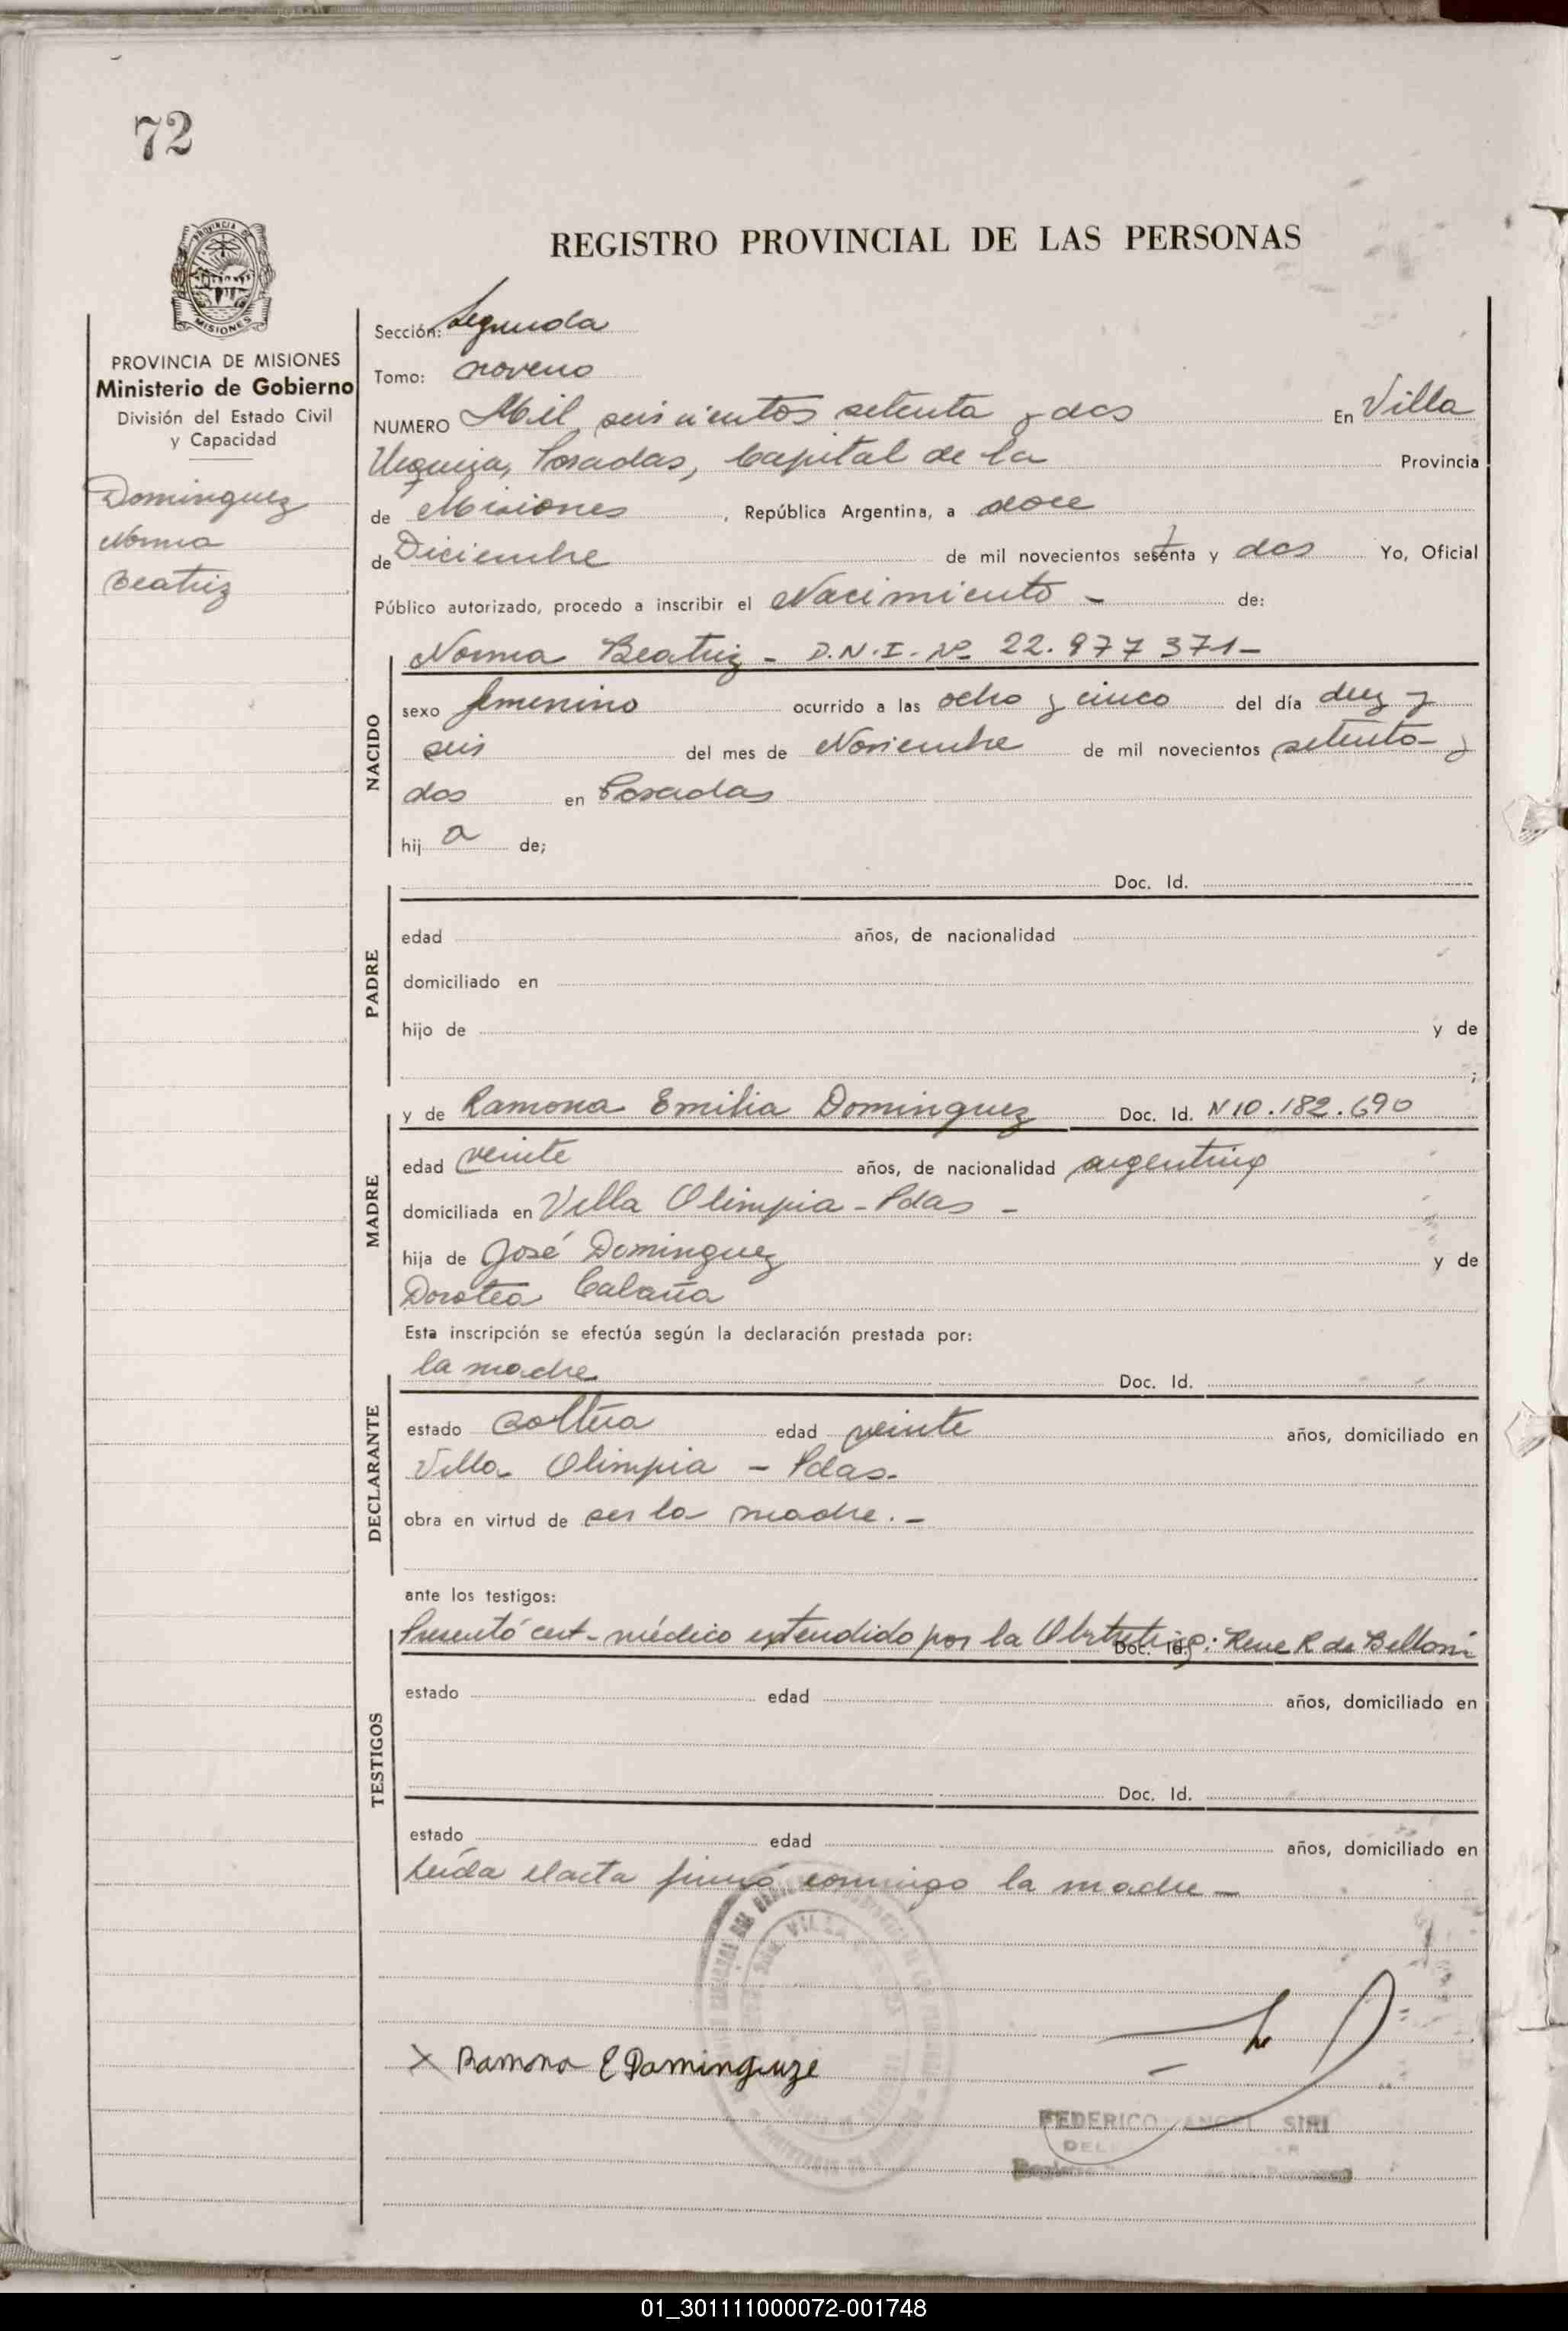 72
PROVINCIA DE
MISIONES
PROVINCIA DE MISIONES
Ministerio de Gobierno
División del Estado Civil
y Capacidad
Dominguez
Norma
Beatriz
REGISTRO PROVINCIAL DE LAS PERSONAS
Sección: Segunda
Tomo: noveno
NUMERO Mil seiscientos setenta y dos En Villa
Urquiza, Posadas, Capital de la Provincia
de Misiones, República Argentina, a doce
de Diciembre de mil novecientos setenta y dos Yo, Oficial
Público autorizado, procedo a inscribir el Nacimiento - de:
Norma Beatriz - D.N.I. Nº 22.977371-
NACIDO
sexo femenino ocurrido a las ocho y cinco del día diez y
seis del mes de Noviembre de mil novecientos setenta y
dos en Posadas
hij a de;
PADRE
Doc. Id.
edad años, de nacionalidad
domiciliado en
hijo de y de
;
MADRE
y de Ramona Emilia Dominguez Doc. Id. N10.182.690
edad veinte años, de nacionalidad argentina
domiciliada en Villa Olimpia - Pdas -
hija de José Dominguez y de
Dorotea
Esta inscripción se efectúa según la declaración prestada por:
DECLARANTE
la madre Doc. Id.
estado soltera edad veinte años, domiciliado en
Villa Olimpia - Pdas.
obra en virtud de ser la madre. -
ante los testigos:
TESTIGOS
Presentó cert. médico extendido por la Obstetriz: Rene R de Belloni
Doc. Id.
estado edad años, domiciliado en
Doc. Id.
estado edad años, domiciliado en
Leida el acta firmó conmigo la madre -
VILLA
X Ramona E Dominguze
FEDERICO ANGEL SIRI
DEL
01_301111000072-001748